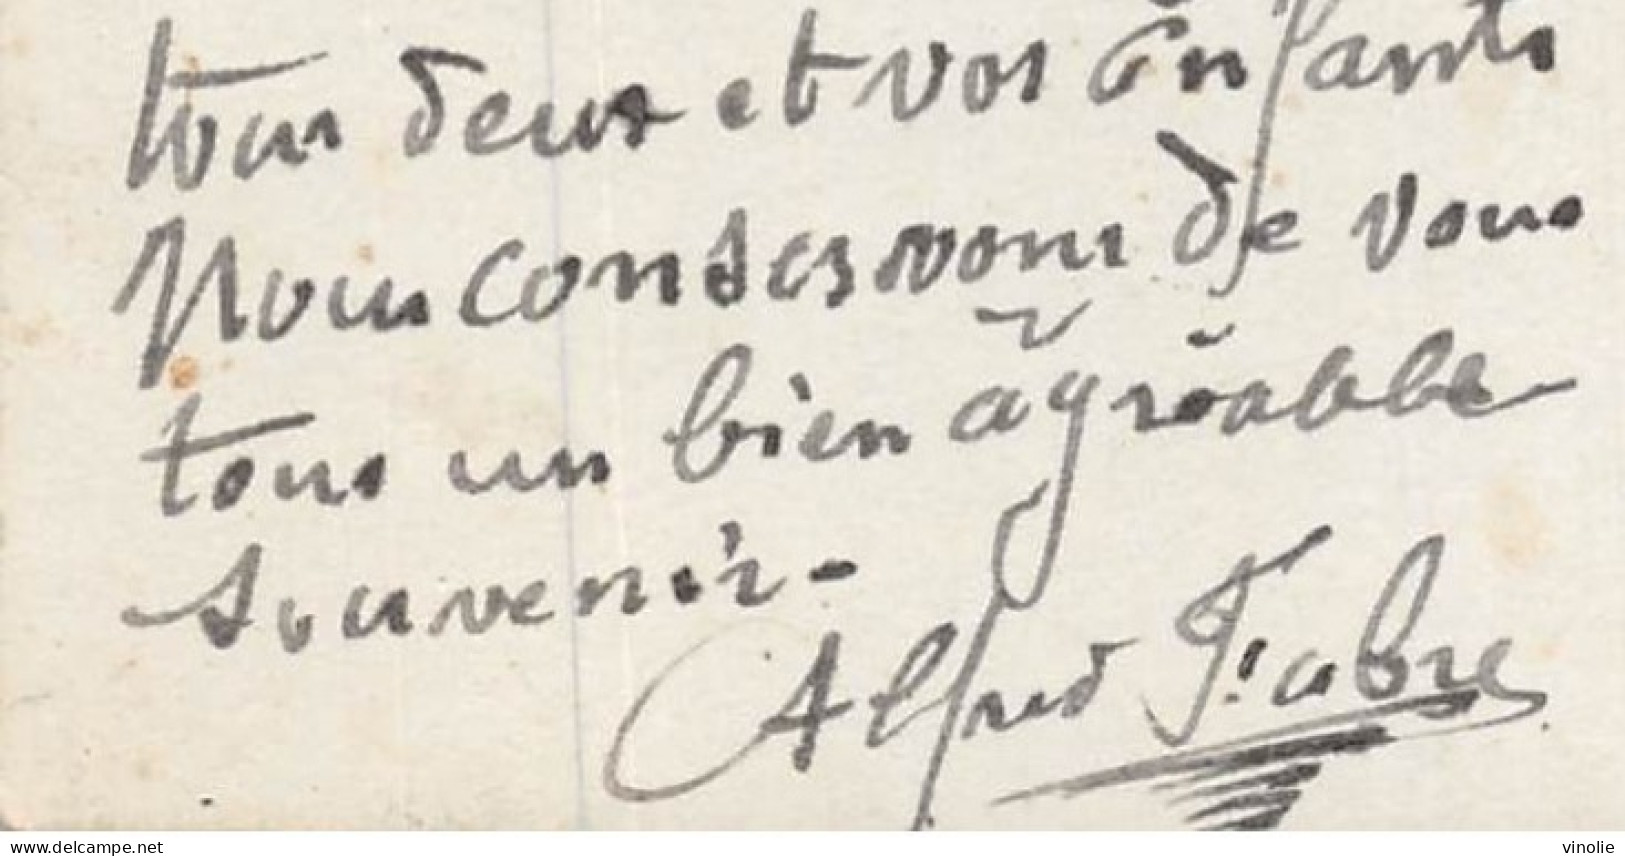 tous deux et vos Enfants
Nous conservons de vous
tous un bien agréable
souvenir-
Alfred Fabre
www.delcampe.net
vinolie